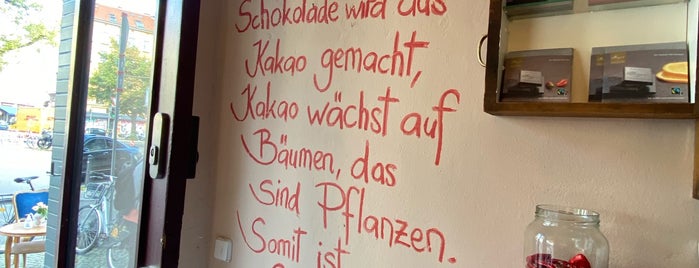 Schokolade wird aus
Kakao gemacht,
Kakao wächst auf
Bäumen, das
sind Pflanzen.
Somit ist